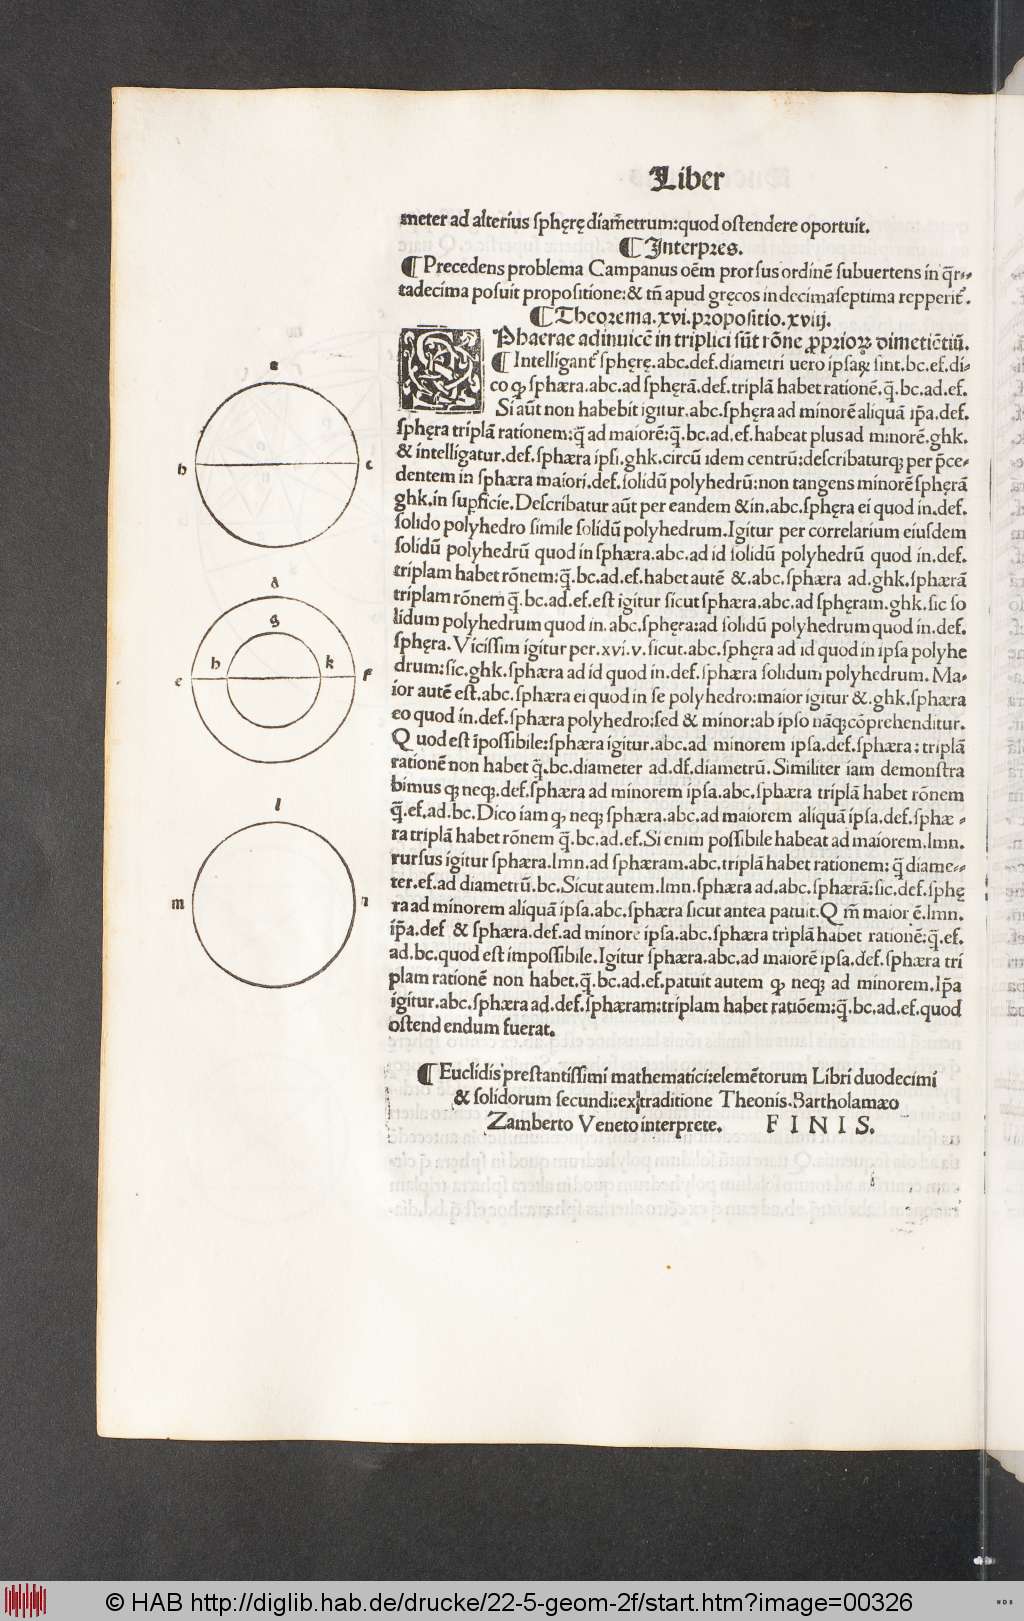 Liber
meter ad alterius sphęrę diam̃etrum:quod ostendere oportuit.
¶ Interpres.
¶ Precedens problema Campanus oẽm prorsus ordinẽ subuertens in q̃r⹀
tadecima posuit propositione:& tñ apud gręcos in decimaseptima repperit̃.
¶ Theorema.xvi.propositio.xviij.
SPhaerae adinuicẽ in triplici sũt rõne ꝓprioꝝ dimetiẽtiũ.
¶ Intelligant̃ sphęrę.abc.def.diametri uero ipsaꝝ sint.bc.ef.di-
co ꝙ sphæra.abc.ad sphęrã.def.triplã habet rationẽ.q̃.bc.ad.ef.
Si aũt non habebit igitur.abc.sphęra ad minorẽ aliquã ip̃a.def.
sphęra triplã rationem:q̃ ad maiorẽ:q̃.bc.ad.ef.habeat plus ad minorẽ.ghk.
& intelligatur.def.sphæra ipsi.ghk.circũ idem centrũ:describaturqꝫ per p̃ce-
dentem in sphæra maiori.def.solidũ polyhedrũ:non tangens minorẽ sphęrã
ghk.in sup̱ficie.Describatur aũt per eandem & in.abc.sphęra ei quod in.def.
solido polyhedro simile solidũ polyhedrum.Igitur per correlarium eiusdem
solidũ polyhedrũ quod in sphæra.abc.ad id solidũ polyhedrũ quod in.def.
triplam habet rõnem:q̃.bc.ad.ef.habet autẽ &.abc.sphæra ad.ghk.sphærã
triplam rõnem q̃.bc.ad.ef.est igitur sicut sphæra.abc.ad sphęram.ghk.sic so
lidum polyhedrum quod in.abc.sphęra:ad solidũ polyhedrum quod in.def.
sphęra.Vicissim igitur per.xvi.v.sicut.abc.sphęra ad id quod in ipsa polyhe
drum:sic.ghk.sphæra ad id quod in.def.sphæra solidum polyhedrum.Ma-
ior autẽ est.abc.sphæra ei quod in se polyhedro:maior igitur &.ghk.sphæra
eo quod in.def.sphæra polyhedro:sed & minor:ab ipso nãqꝫ cõprehenditur.
Quod est ĩpossibile:sphæra igitur.abc.ad minorem ipsa.def.sphæra:triplã
rationẽ non habet q̃.bc.diameter ad.df.diametrũ.Similiter iam demonstra
bimus qꝫ neqꝫ.def.sphæra ad minorem ipsa.abc.sphæra triplã habet rõnem
q̃.ef.ad.bc.Dico iam ꝙ neqꝫ sphæra.abc.ad maiorem aliquã ipsa.def.sphæ-
ra triplã habet rõnem q̃.bc.ad.ef.Si enim possibile habeat ad maiorem.lmn.
rursus igitur sphæra.lmn.ad sphæram.abc.triplã habet rationem:q̃ diame⹀
ter.ef.ad diametrũ.bc.Sicut autem.lmn.sphæra ad.abc.sphærã:sic.def.sphę
ra ad minorem aliquã ipsa.abc.sphæra sicut antea patuit.Qm̃ maior ẽ.lmn.
ip̃a.def & sphæra.def.ad minorẽ ipsa.abc.sphæra triplã habet rationẽ:q̃.ef.
ad.bc.quod est impossibile.Igitur sphæra.abc.ad maiorẽ ipsa.def.sphæra tri
plam rationẽ non habet.q̃.bc.ad.ef.patuit autem ꝙ neqꝫ ad minorem.Ip̃a
igitur.abc.sphæra ad.def.sphæram:triplam habet ratiõem:q̃.bc.ad.ef.quod
ostendendum fuerat.
¶ Euclidis prestantissimi mathematici:elemẽtorum Libri duodecimi
& solidorum secundi:ex traditione Theonis.Bartholamæo
Zamberto Veneto interprete. FINIS.
a
b c
d
g
h k
e f
l
m n
© HAB http://diglib.hab.de/drucke/22-5-geom-2f/start.htm?image=00326